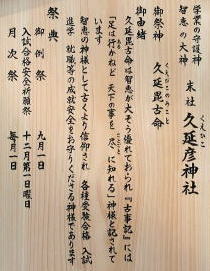 学業の守護神
智恵の大神
末社 久延彦神社
くえひこ
御祭神 久延毘古命
くえびこのみこと
御由緒
久延毘古命は智恵が大そう優れておられ『古事記』には
「足は行かねど 天下の事を 尽に知れる」神様と記されて
ことごと
います
智恵の神様として古くより信仰され 各種受験合格 入試
進学 就職等の成就安全をお守りくださる神様であります
祭典
御例祭 九月一日
入試合格安全祈願祭 十二月第一日曜日
月次祭 毎月一日